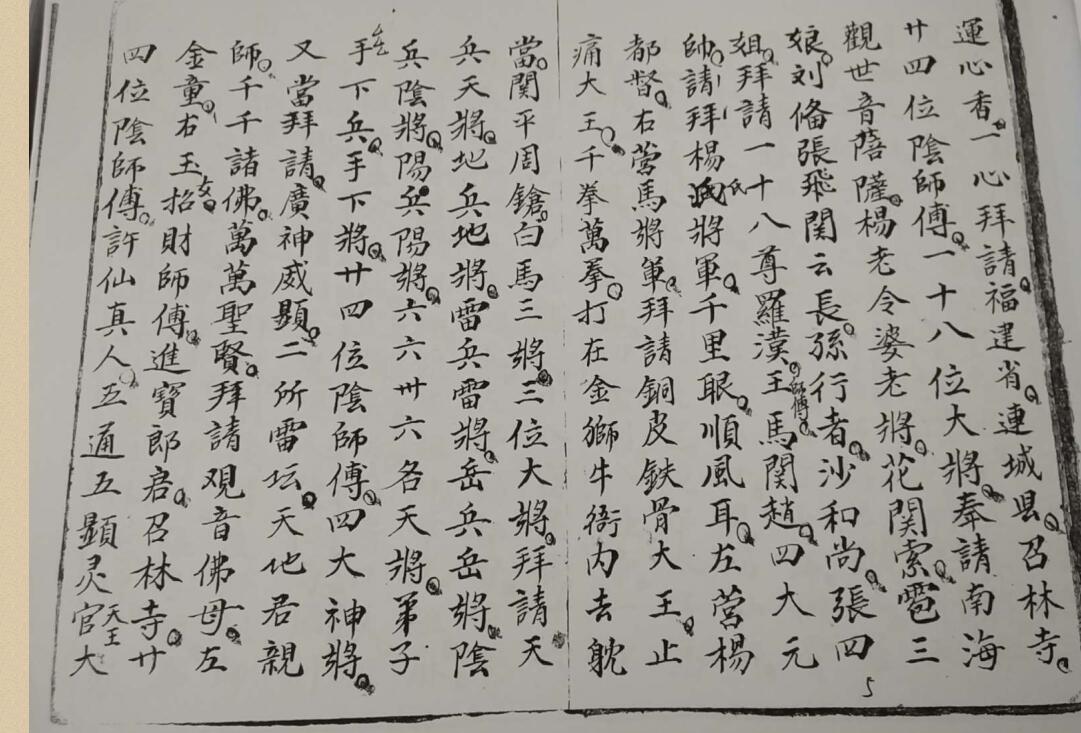 運心香。一心拜請。福建省。連城县。召林寺。
廿四位陰師傅。一十八位大將。奉請南海
觀世音菩薩。楊老令婆老將。花関索。雹三
娘。刘俻張飛関云長。孫行者。沙和尚。張四
姐。拜請一十八尊羅漢。師傅。王馬関趙。四大元
帥。請拜楊氏將軍。千里眼。順風耳。左营楊
都督。右营馬將軍。拜請銅皮鉄骨大王。止
痛大王。千拳萬拳。打在金獅牛衙内去躭
當。関平周鎗。白馬三將。三位大將。拜請天
兵天將。地兵地將。雷兵雷將。岳兵岳將。陰
兵陰將。陽兵陽將。六六卅六各天將。弟子
手下兵。手下將。廿四位陰師傅。四大神將。
又當拜請。廣神威顯。二所雷坛。天地君親
師。千千諸佛。萬萬聖賢。拜請观音佛母。左
金童。右玉女。招財師傅。進寶郎君。召林寺。廿
四位陰師傅。許仙真人。五通五顯灵官天王大
5